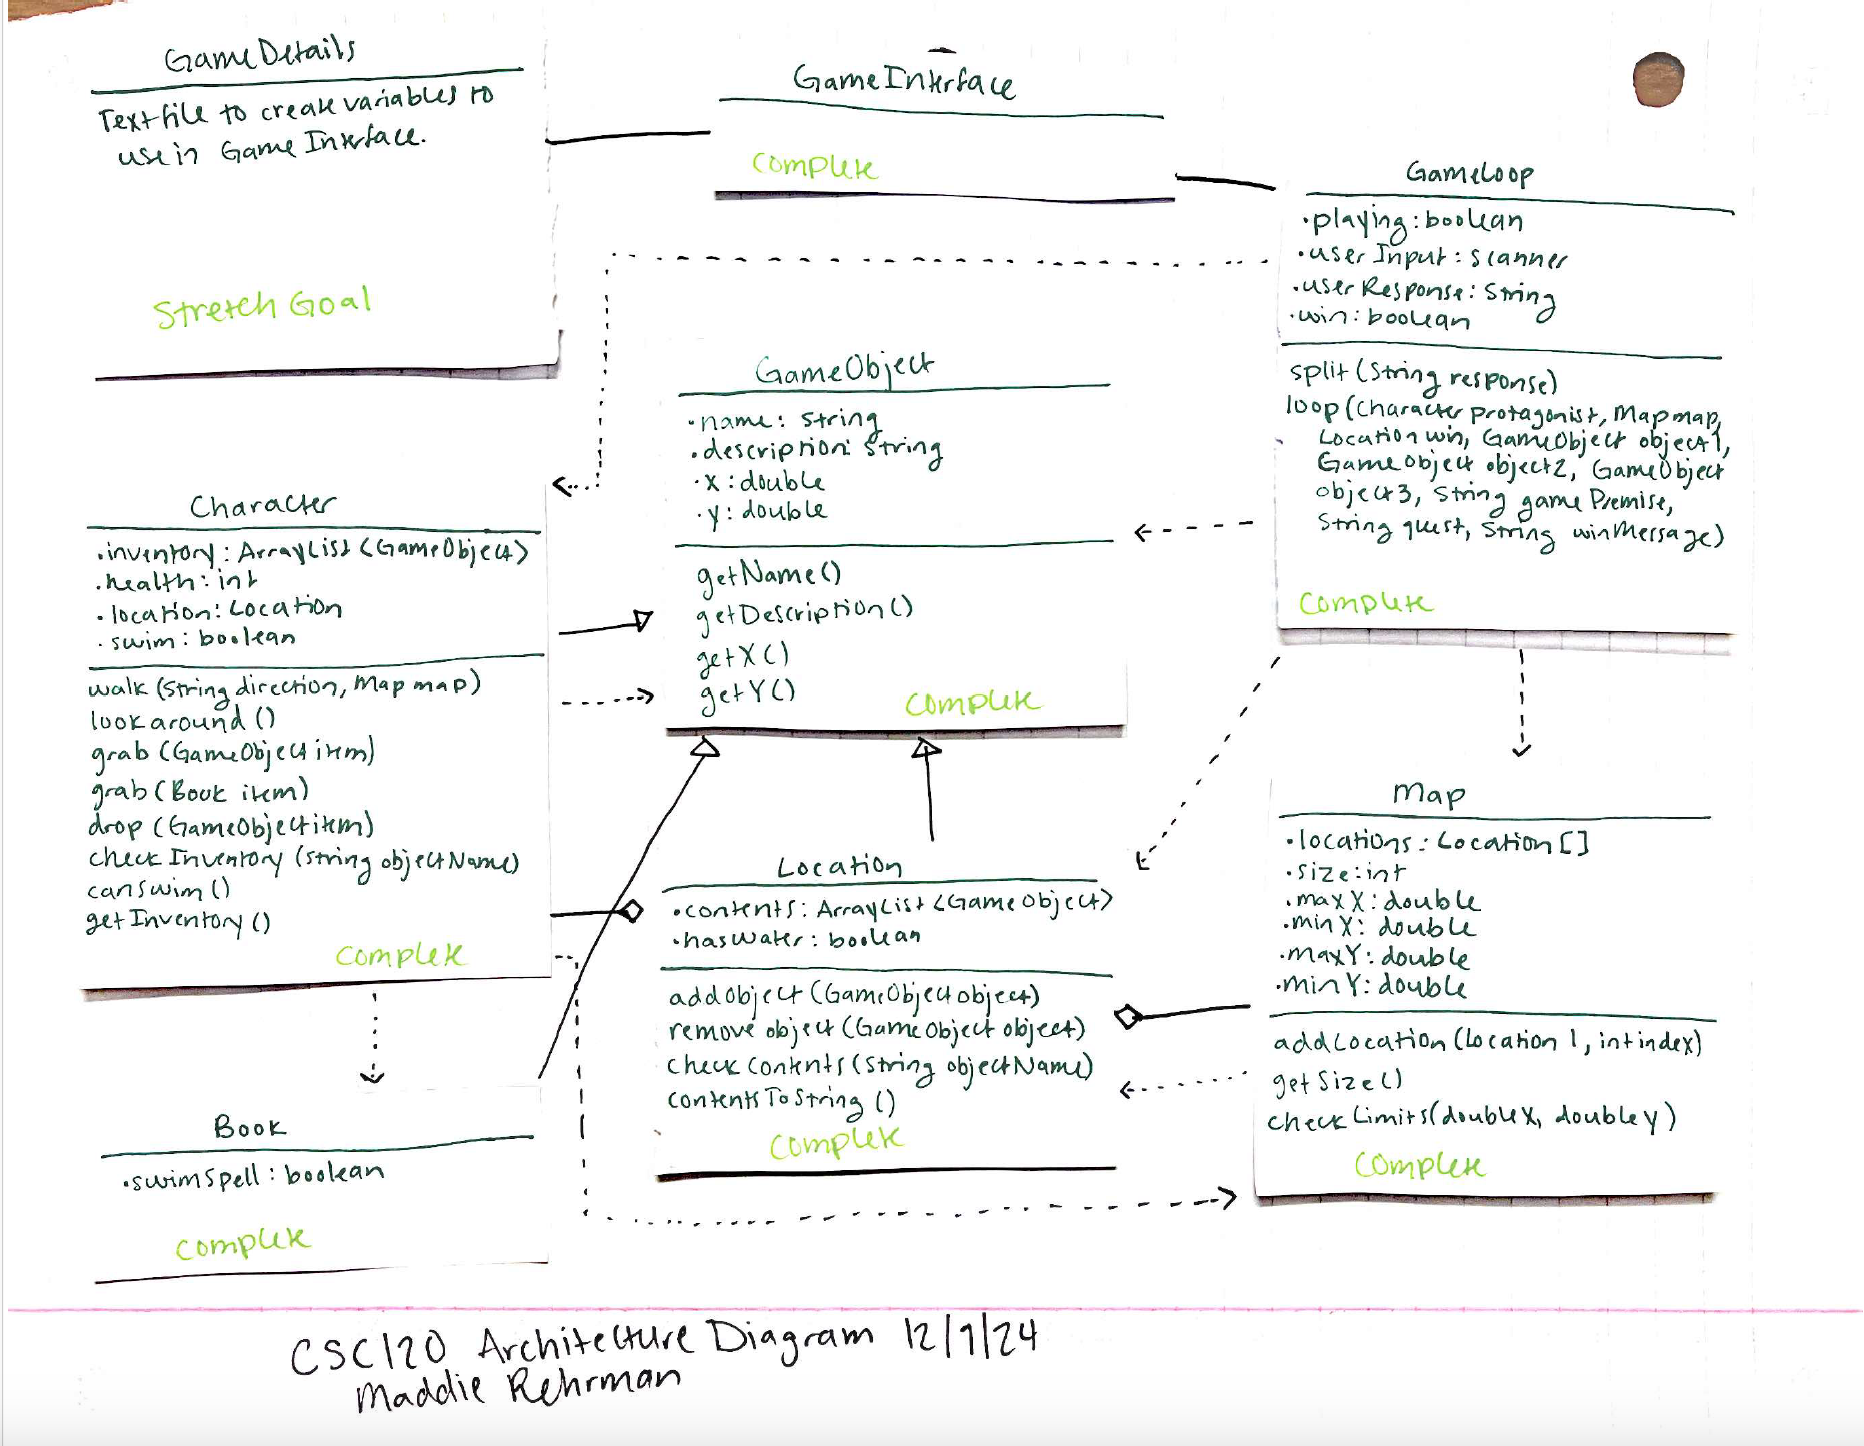 GameDetails
Textfile to create variables to
use in Game Interface.
Stretch Goal
GameInterface
complete
GameLoop
·playing: boolean
·userInput: scanner
·userResponse: String
·win: boolean
split (String response)
loop (Character protagonist, Map map,
Location win, GameObject object1,
GameObject object2, GameObject
object3, String gamePremise,
String quest, String winMessage)
complete
GameObject
·name: String
·description: String
·x: double
·y: double
getName()
getDescription()
getX()
getY()
complete
Character
·inventory: ArrayList <GameObject>
·health: int
·location: Location
·swim: boolean
walk (String direction, Map map)
look around ()
grab (GameObject item)
grab (Book item)
drop (GameObject item)
check Inventory (String objectName)
canswim ()
getInventory ()
complete
Location
·contents: ArrayList <GameObject>
·hasWater: boolean
addobject (GameObject object)
remove object (GameObject object)
check contents (String objectName)
contentsToString ()
complete
Map
·locations: Location []
·size: int
·maxX: double
·minX: double
·maxY: double
·minY: double
addLocation (Location l, int index)
getSize()
checkLimits(double x, double y)
complete
Book
·swimspell: boolean
complete
CSC120 Architecture Diagram 12/9/24
Maddie Rehrman